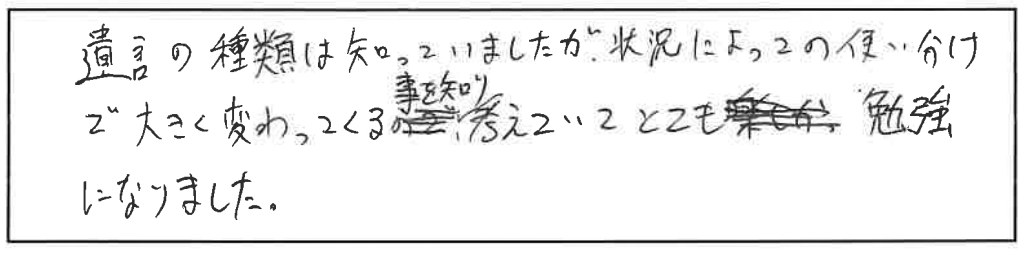 遺言の種類は知っていましたが、状況によっての使い分け
で大きく変わってくる事を知り、考えていてとても勉強
になりました。